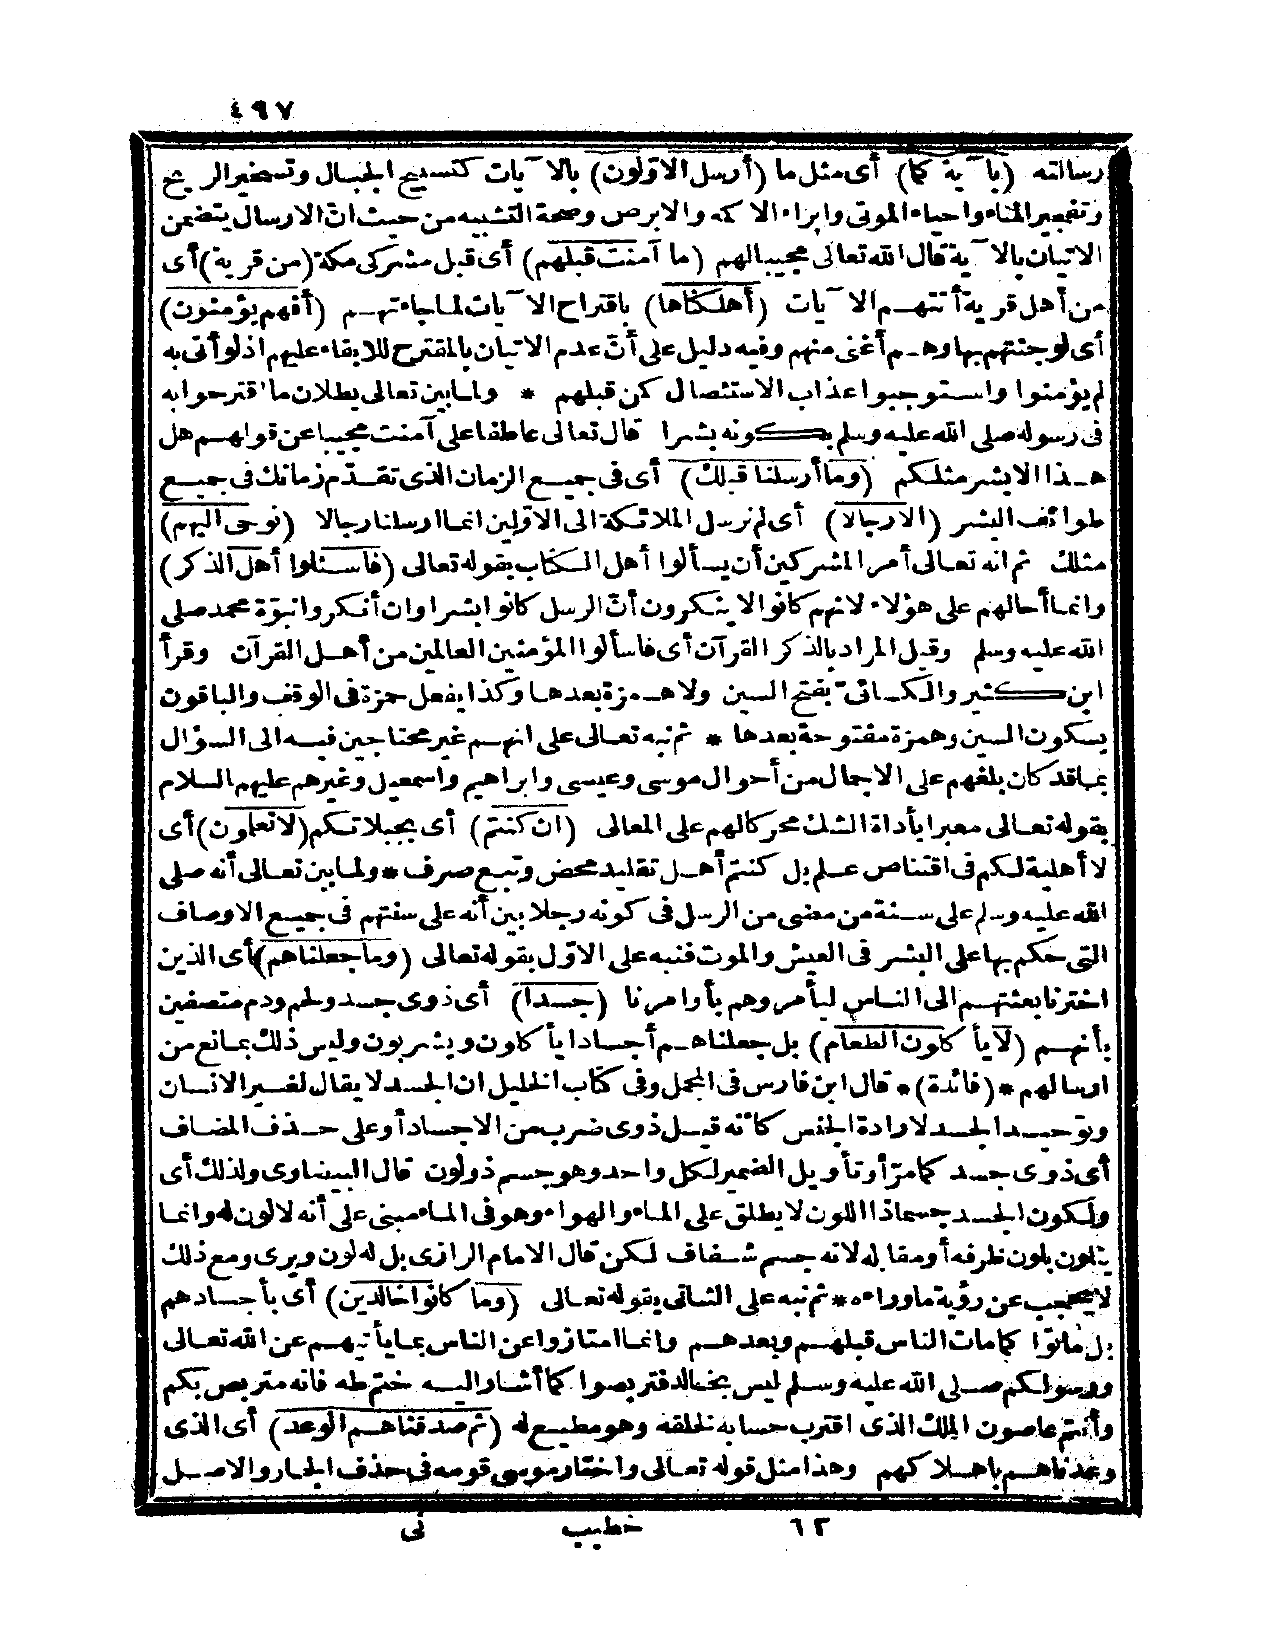 ٤٩٧
رسالته (بآية كما) أى مثل ما (أرسل الاوّلون) بالآيات كتسبيح الجبال وتسخير الريح
وتفجير الماء واحياء الموتى وابراء الاكمه والابرص وصحة التشبيه من حيث انّ الارسال يتضمن
الاتيان بالآية قال الله تعالى مجيبا لهم (ما آمنت قبلهم) أى قبل مشركى مكة (من قرية) أى
من أهل قرية أتتهم الآيات (أهلكناها) باقتراح الآيات لما جاءتهم (أفهم يؤمنون)
أى لو جئتهم بها وهم أغنى منهم وفيه دليل على أنّ عدم الاتيان بالمقترح للابقاء عليهم اذ لو أتى به
لم يؤمنوا واستوجبوا عذاب الاستئصال كمن قبلهم * ولما بين تعالى بطلان ما اقترحوا به
فى رسوله صلى الله عليه وسلم بكونه بشرا قال تعالى عاطفا على آمنت مجيبا عن قولهم هل
هذا الا بشر مثلكم (وما أرسلنا قبلك) أى فى جميع الزمان الذى تقدّم زمانك فى جميع
طوائف البشر (الا رجالا) أى لم نرسل الملائكة الى الاوّلين انما ارسلنا رجالا (نوحى اليهم)
مثلك ثم انه تعالى أمر المشركين أن يسألوا أهل الكتاب بقوله تعالى (فاسئلوا أهل الذكر)
وانما أحالهم على هؤلاء لانهم كانوا لا ينكرون أنّ الرسل كانوا بشرا وان أنكروا نبوّة محمد صلى
الله عليه وسلم وقيل المراد بالذكر القرآن أى فاسألوا المؤمنين العالمين من أهل القرآن وقرأ
ابن كثير والكسائى بفتح السين ولا همزة بعدها وكذا يفعل حمزة فى الوقف والباقون
بسكون السين وهمزة مفتوحة بعدها * ثم نبه تعالى على انهم غير محتاجين فيه الى السؤال
بما قد كان بلغهم على الاجمال من أحوال موسى وعيسى وابراهيم واسمعيل وغيرهم عليهم السلام
بقوله تعالى معبرا بأداة الشك محركا لهم على المعالى (ان كنتم) أى بجبلاتكم (لا تعلمون) أى
لا أهلية لكم فى اقتناص علم بل كنتم أهل تقليد محض وتبع صرف * ولما بين تعالى أنه صلى
الله عليه وسلم على سنة من مضى من الرسل فى كونه رجلا بين أنه على سنتهم فى جميع الاوصاف
التى حكم بها على البشر فى العيش والموت فنبه على الاوّل بقوله تعالى (وما جعلناهم) أى الذين
اخترنا بعثتهم الى الناس ليأمروهم بأوامرنا (جسدا) أى ذوى جسد ولحم ودم متصفين
بأنهم (لا يأكلون الطعام) بل جعلناهم أجسادا يأكلون ويشربون وليس ذلك بمانع من
ارسالهم * (فائدة) * قال ابن فارس فى المجمل وفى كتاب الخليل ان الجسد لا يقال لغير الانسان
وتوحيد الجسد لارادة الجنس كأنه قيل ذوى ضرب من الاجساد أو على حذف المضاف
أى ذوى جسد كما مرّ أو تأويل الضمير لكل واحد وهو جسم ذو لون قال البيضاوى ولذلك أى
ولكون الجسد جسما ذا اللون لا يطلق على الماء والهواء وهو فى الماء مبنى على أنه لا لون له وانما
يتلون بلون ظرفه أو مقابله لانه جسم شفاف لكن قال الامام الرازى بل له لون ويرى ومع ذلك
لا يحجب عن رؤية ما وراءه * ثم نبه على الثانى بقوله تعالى (وما كانوا خالدين) أى بأجسادهم
بل ماتوا كما مات الناس قبلهم وبعدهم وانما امتازوا عن الناس بما يأتيهم عن الله تعالى
ورسولكم صلى الله عليه وسلم ليس بخالد فتربصوا كما أشار اليه ختم طه فانه متربص بكم
وأنتم عاصون الملك الذى اقترب حسابه لخلقه وهو مطيع له (ثم صدقناهم الوعد) أى الذى
وعدناهم باهلاكهم وهذا مثل قوله تعالى واختار موسى قومه فى حذف الجار والاصل
٦٣ خطيب نى